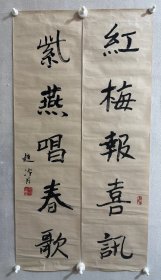 紅梅報喜訊
紫燕唱春歌